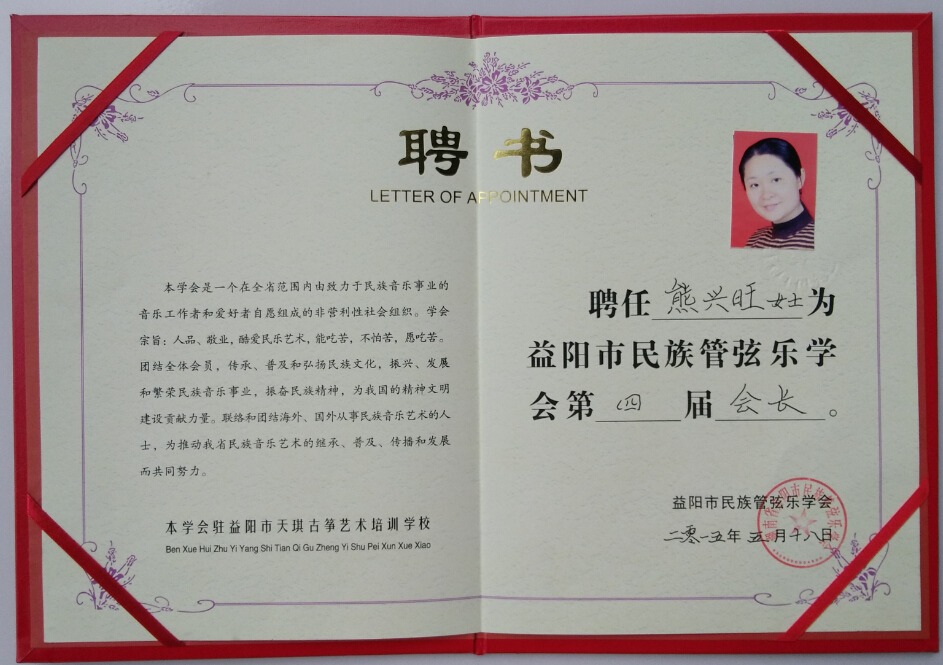 聘书
LETTER OF APPOINTMENT
本学会是一个在全省范围内由致力于民族音乐事业的
音乐工作者和爱好者自愿组成的非营利性社会组织。学会
宗旨：人品、敬业，酷爱民乐艺术，能吃苦，不怕苦，愿吃苦。
团结全体会员，传承、普及和弘扬民族文化，振兴、发展
和繁荣民族音乐事业，振奋民族精神，为我国的精神文明
建设贡献力量。联络和团结海外、国外从事民族音乐艺术的人
士，为推动我省民族音乐艺术的继承、普及、传播和发展
而共同努力。
本学会驻益阳市天琪古筝艺术培训学校
Ben Xue Hui Zhu Yi Yang Shi Tian Qi Gu Zheng Yi Shu Pei Xun Xue Xiao
聘任熊兴旺女士为
益阳市民族管弦乐学
会第四届会长。
益阳市民族管弦乐学会
二零一五年五月十八日